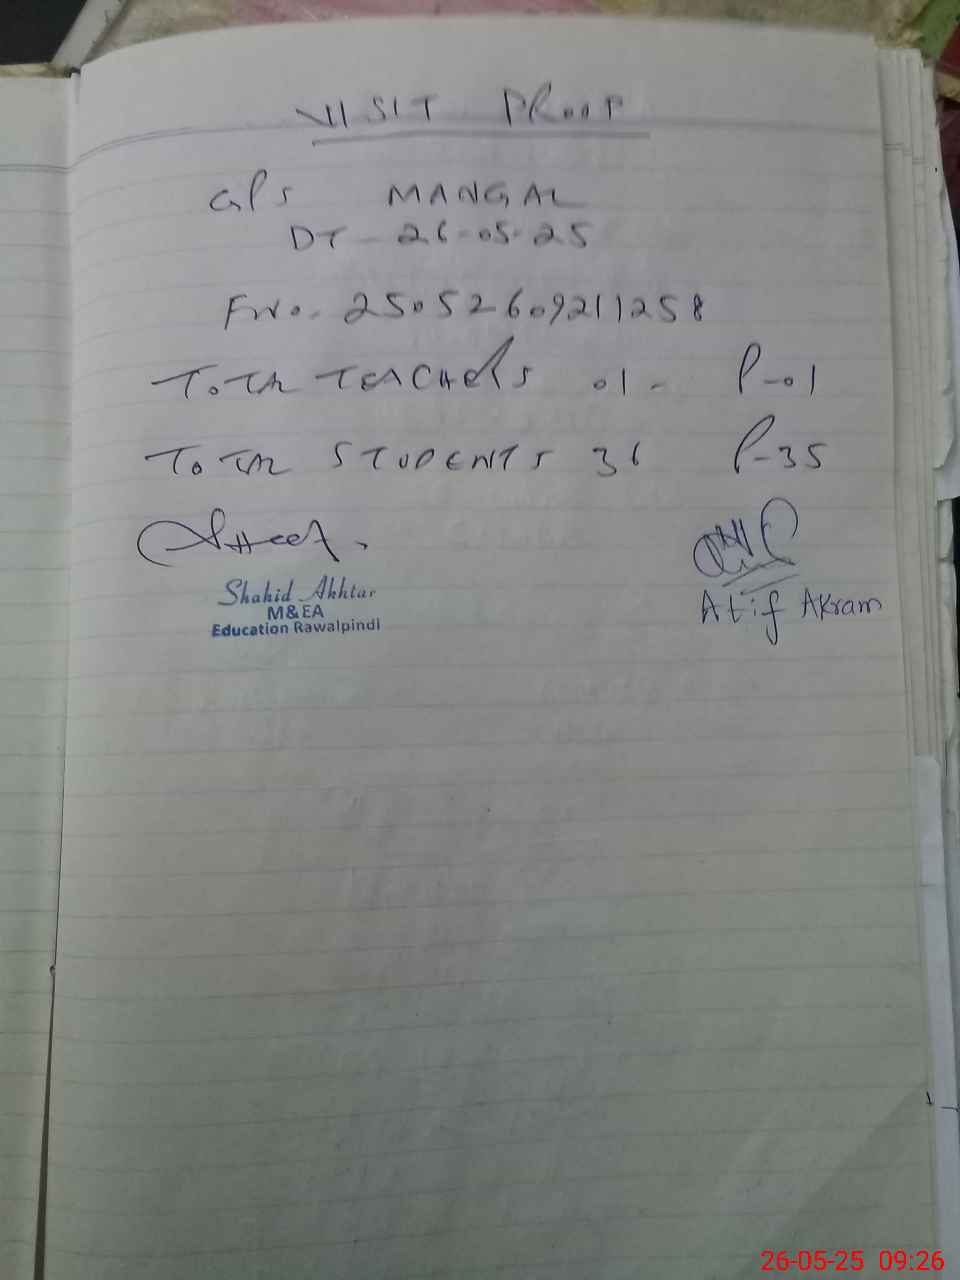 VISIT PROOF
GPS MANGAL
DT - 26-05-25
FNo. 25052609211258
TOTAL TEACHERS 01 - P-01
TOTAL STUDENTS 36 P-35
Shahid Akhtar
M&EA
Education Rawalpindi
Atif Akram
26-05-25 09:26